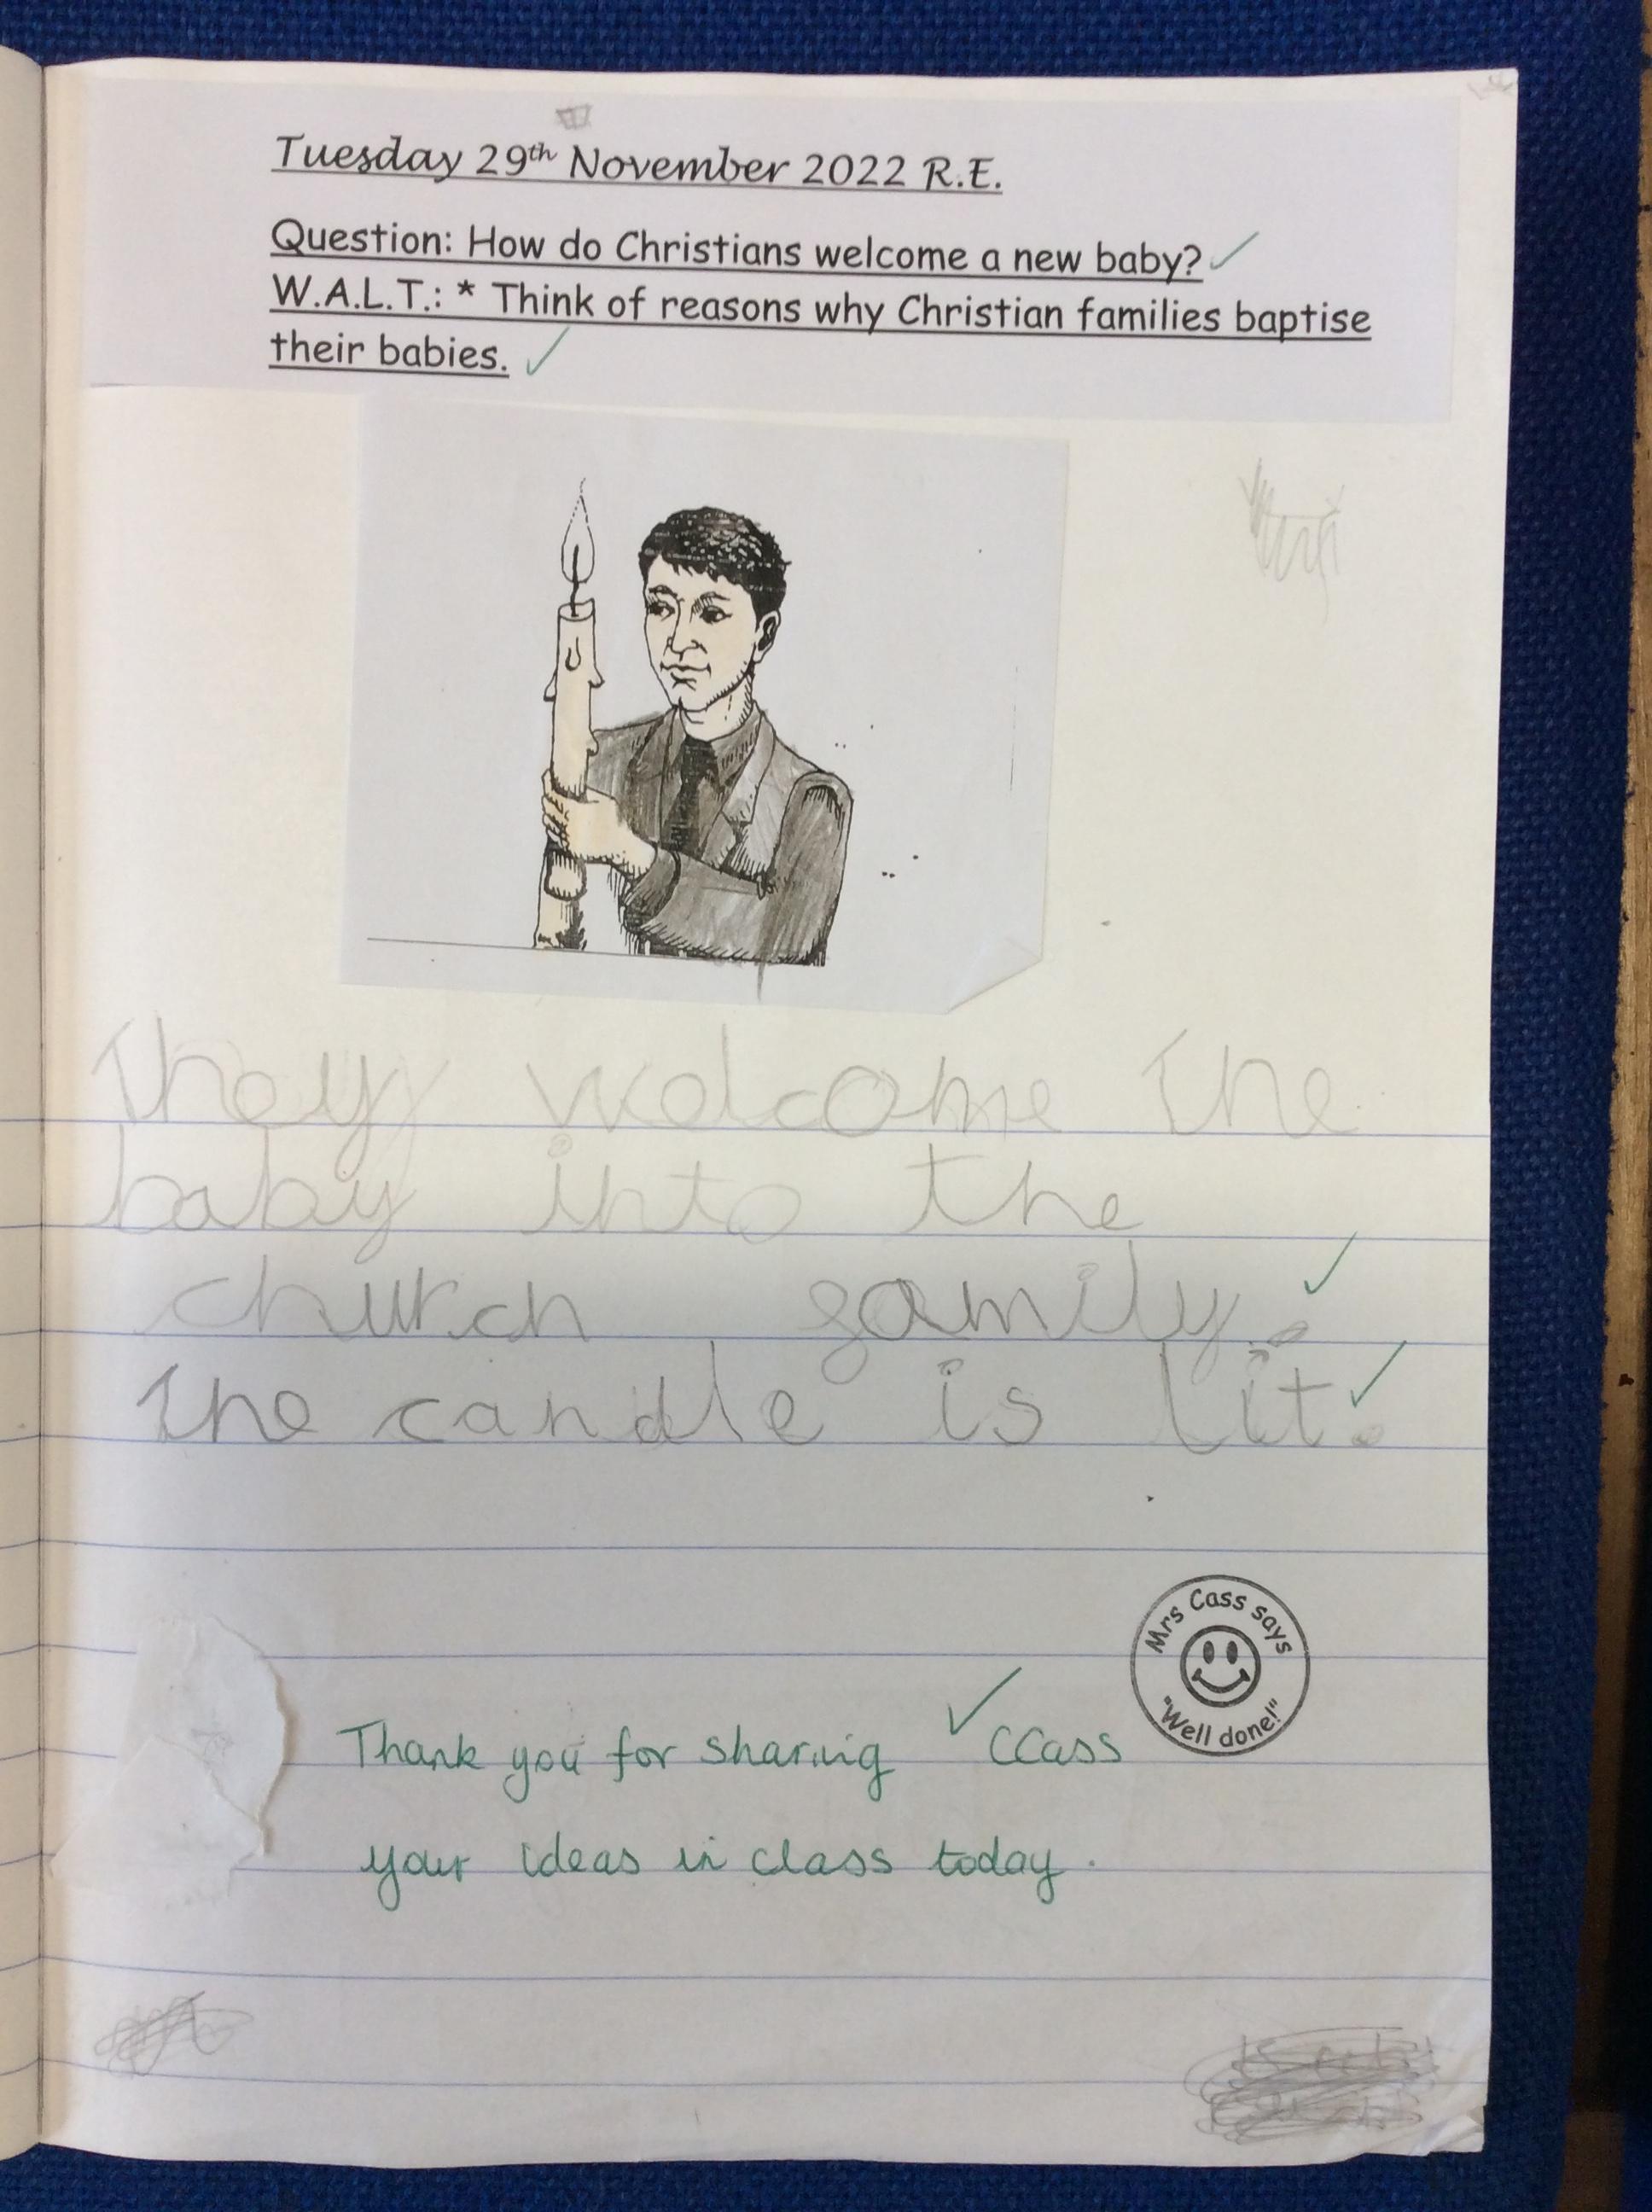 Tuesday 29th November 2022 R.E.
Question: How do Christians welcome a new baby?
W.A.L.T.: * Think of reasons why Christian families baptise
their babies.
They welcome the
baby into the
church family.
The candle is lit.
Mrs Cass says
"Well done!"
Thank you for sharing CCass
your ideas in class today.